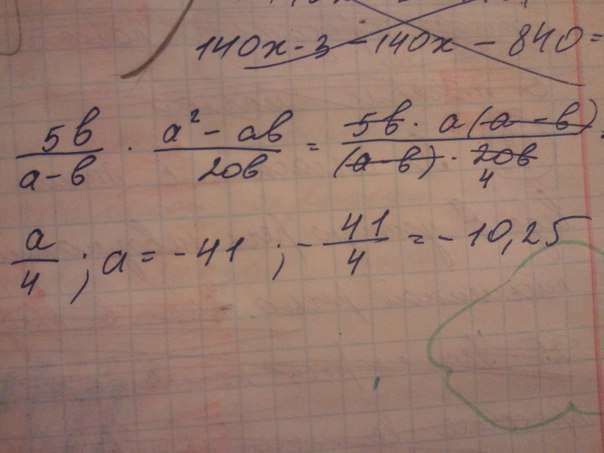 140x - 3 - 140x - 840 =
5в/(a-в) · (a² - aв)/20в = (5в · a(a-в))/((a-в) · 20в) =
4
a/4 ; a = -41 ; -41/4 = -10,25